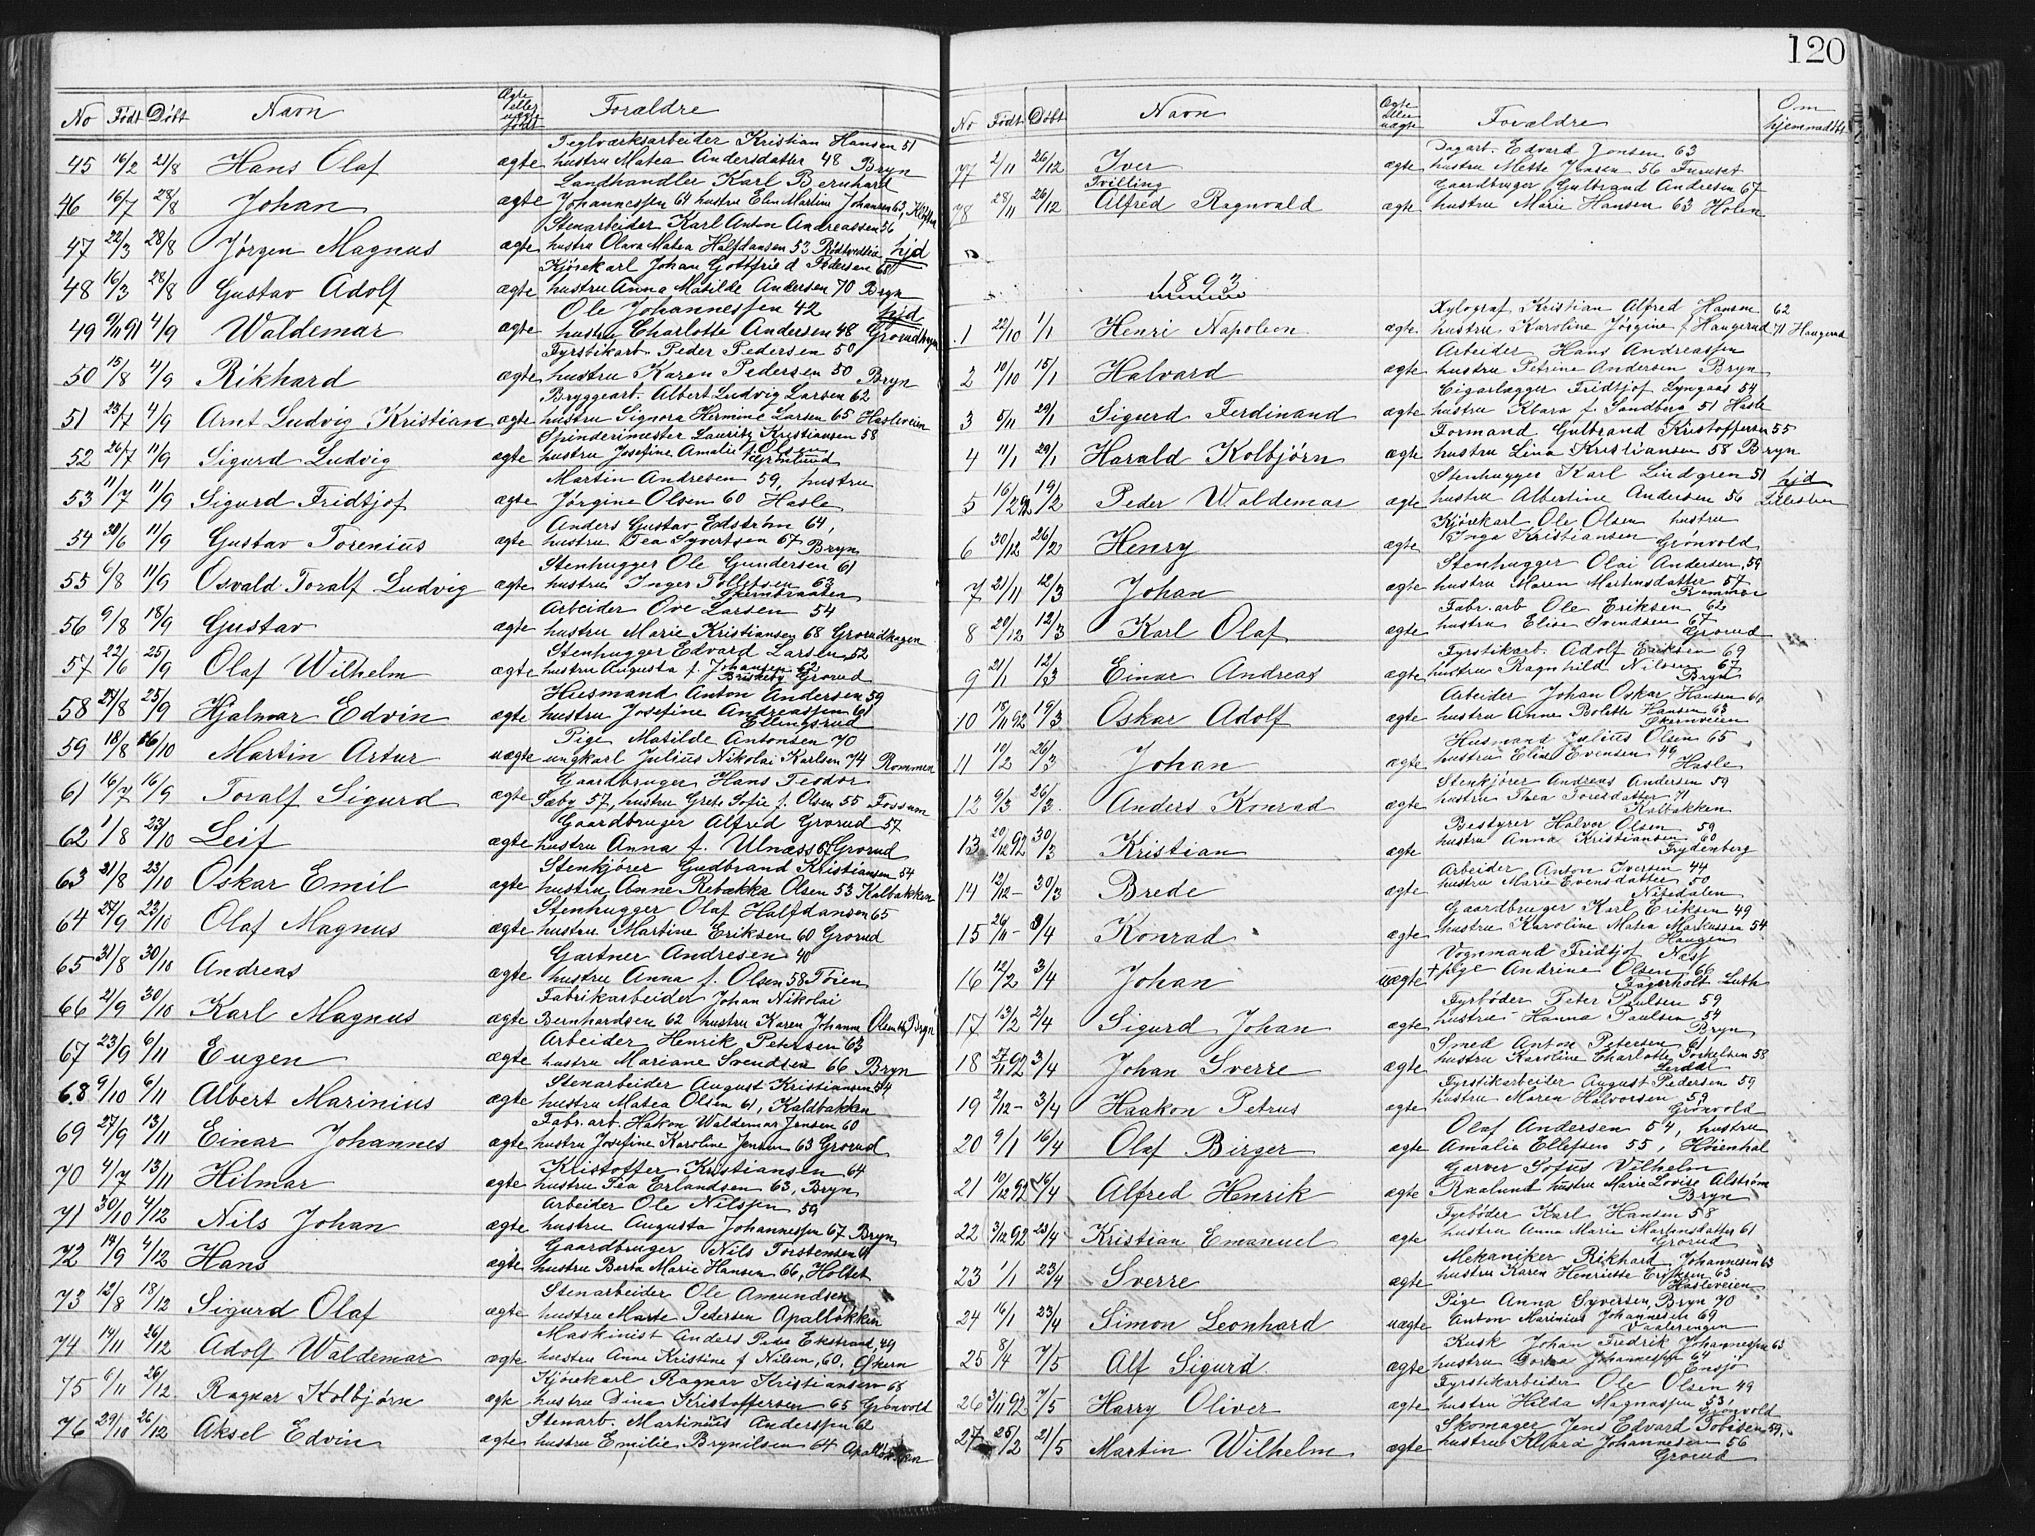 No Født Døbt Navn Ægte eller uægte født Forældre
45 16/2 21/8 Hans Olaf ægte Teglværksarbeider Kristian Hansen 51
hustru Matea Andersdatter 48 Bryn
46 16/7 28/8 Johan ægte Landhandler Karl Bernhard
Johannessen 64 hustru Elen Martine Johansen 63,
47 22/3 28/8 Jørgen Magnus ægte Stenarbeider Karl Anton Andreassen 56
hustru Olava Matea Halfdansen 53 hjd
48 16/3 28/8 Gustav Adolf ægte Kjørekarl Johan Gottfried Pedersen 68
hustru Anna Matilde Andersen 70 Bryn
49 9/11 91 4/9 Waldemar ægte Ole Johannessen 42 hjd
hustru Charlotte Andersen 48
50 15/8 4/9 Rikhard ægte Fyrstikarb. Peder Pedersen 50
hustru Karen Pedersen 50 Bryn
51 23/7 4/9 Arnt Ludvig Kristian ægte Bryggearb. Albert Ludvig Larsen 62
hustru Signora Hermine Larsen 65 Hasleveien
52 26/7 11/9 Sigurd Ludvig ægte Spinderimester Lauritz Kristiansen 58
hustru Josefine Amalie f. Olsen Grønlund
53 11/7 11/9 Sigurd Fridtjof ægte Martin Andresen 59, hustru
Jørgine Olsen 60 Hasle
54 30/6 11/9 Gustav Torenius ægte Anders Gustav Edström 64,
hustru Tea Syvertsen 67 Bryn
55 6/8 11/9 Osvald Toralf Ludvig ægte Stenhugger Ole Gundersen 61
hustru Inger Tollefsen 63
56 9/8 18/9 Gustav ægte Arbeider Ove Larsen 54
hustru Marie Kristiansen 68 Grorudhagen
57 22/6 25/9 Olaf Wilhelm ægte Stenhugger Edvard Larsen 52
hustru Augusta f. Johansen 62 Briskeby Grorud
58 27/8 25/9 Hjalmar Edvin ægte Husmand Anton Andersen 59
hustru Josefine Andreassen 61
Ellingsrud
59 18/8 16/10 Martin Artur uægte Pige Matilde Antonsen 70
ungkarl Julius Nikolai Karlsen 74 Rommen
61 16/7 16/9 Toralf Sigurd ægte Gaardbruger Hans Teodor
Sæby 57, hustru Grete Sofie f. Olsen 55 Fossum
62 1/8 23/10 Leif ægte Gaardbruger Alfred Grorud 57
hustru Anna f. Ulnæss 67 Grorud
63 21/8 23/10 Oskar Emil ægte Stenkjører Gudbrand Kristiansen 54
hustru Anne Rebækka Olsen 53 Kalbakken
64 27/9 23/10 Olaf Magnus ægte Stenhugger Olaf Halfdansen 65
hustru Martine Eriksen 60 Grorud
65 31/8 30/10 Andreas ægte Gartner Andresen 40
hustru Anna f. Olsen 58 Töien
66 21/9 30/10 Karl Magnus ægte Fabrikarbeider Johan Nikolai
Bernhardsen 62 hustru Karen Johanne Olsen Bryn
67 23/9 6/11 Eugen ægte Arbeider Henrik Petersen 63
hustru Mariane Svendsen 66 Bryn
68 9/10 6/11 Albert Marinius ægte Stenarbeider August Kristiansen 54
hustru Matea Olsen 61, Kaldbakken
69 27/9 13/11 Einar Johannes ægte Fabr. arb. Hakon Waldemar Jensen 60
hustru Josefine Karoline Jensen 63 Grorud
70 4/7 13/11 Hilmar ægte Kristoffer Kristiansen 64
hustru Tea Erlandsen 63, Bryn
71 30/10 4/12 Nils Johan ægte Arbeider Ole Nilssen 59
hustru Augusta Johannessen 67 Bryn
72 14/9 4/12 Hans ægte Gaardbruger Nils Torstensen 61
hustru Berta Marie Hansen 66, Holtet
73 12/8 18/12 Sigurd Olaf ægte Stenarbeider Ole Amundsen
hustru Marte Pedersen Apalløkken
74 14/11 26/12 Adolf Waldemar ægte Maskinist Anders Peter Ekstrand, 49
hustru Anne Kristine f. Nilsen, 60, Økern
75 6/11 26/12 Ragnar Kolbjørn ægte Kjørekarl Ragnar Kristiansen 68
hustru Dina Kristoffersen 65 Grønvold
76 29/10 26/12 Aksel Edvin ægte Stenarb. Martinius Anderssen 62
hustru Emilie Brynilsen 64
120
No Født Døbt Navn Ægte eller uægte Forældre Om hjemmedøbt
77 2/11 26/12 Iver ægte Dagarb. Edvard Jonsen 63
hustru Mette Jensen 56 Furuset
Tvilling
78 28/11 26/12 Alfred Ragnvald ægte Gaardbruger Gulbrand Andresen 67
hustru Marie Hansen 63 Holen
1893
1 22/10 1/1 Henri Napoleon ægte Xylograf Kristian Alfred Hansen 62
hustru Karoline Jørgine f. Haugerud 71 Haugerud
2 10/10 15/1 Halvard ægte Arbeider Hans Andreassen
hustru Petrine Andersen Bryn
3 5/11 29/1 Sigurd Ferdinand ægte Cigarlægger Fridtjof Lyngaas 54
hustru Klara f. Sandberg 51 Hasle
4 11/1 29/1 Harald Kolbjørn ægte Formand Gulbrand Kristoffersen 55
hustru Lina Kristiansen 58 Bryn
5 16/2 92 19/2 Peder Waldemar ægte Stenhugger Karl Lindgren 51 hjd
hustru Albertine Andersen 56 Lillestøen
6 30/12 26/2 Henry ægte Kjørekarl Ole Olsen hustru
Inga Kristiansen Grønvold
7 21/11 12/3 Johan ægte Stenhugger Olai Andersen 59
hustru Maren Martinsdatter 57
Rommen
8 29/12 12/3 Karl Olaf ægte Fabr. arb Ole Eriksen 62
hustru Elise Svendsen 67
Grorud
9 21/1 12/3 Einar Andreas ægte Fyrstikarb. Adolf Eriksen 69
hustru Ragnhild Nilsen 67
Bryn
10 18/11 92 19/3 Oskar Adolf ægte Arbeider Johan Oskar Hansen 66
hustru Anne Bolette Hansen 63
Økernveien
11 10/2 26/3 Johan ægte Husmand Julius Olsen 65
hustru Eline Evensen 49
Hasle
12 9/3 26/3 Anders Konrad ægte Stenkjører Andreas Andersen 59
hustru Thea Toresdatter 71
Kalbakken
13 20/12 92 30/3 Kristian ægte Bestyrer Halvor Olsen 59
hustru Anna Kristiansen 60
Frydenberg
14 12/12 - 30/3 Brede ægte Arbeider Anton Iversen 44
hustru Marie Evensdatter 50
Nitedalen
15 26/11 - 3/4 Konrad ægte Gaardbruger Karl Eriksen 49
hustru Karoline Matea Markussen 54
Haugen
16 12/2 3/4 Johan uægte Vognmand Fridtjof Næss
+ pige Andrine Olsen 66
Fagerholt Luth
17 13/2 2/4 Sigurd Johan ægte Fyrbøder Peter Paulsen 59
hustru Hanna Paulsen 54
Bryn
18 27/11 92 3/4 Johan Sverre ægte Smed Anton Petersen 61
hustru Karoline Charlotte Torkelsen 58
19 2/12 - 3/4 Haakon Petrus ægte Fyrstikarbeider August Pedersen 59
hustru Maren Halvorsen 59
Grønvold
20 9/1 16/4 Olaf Birger ægte Olaf Andersen 54, hustru
Amalia Ellefsen 55, Höienhal
21 10/12 92 16/4 Alfred Henrik ægte Garver Sofus Vilhelm
Raalund hustru Marie Lovise Alström
Bryn
22 3/12 92 23/4 Kristian Emanuel ægte Fyrbøder Karl Hansen 58
hustru Anna Marie Martinsdatter 61
Grorud
23 1/1 23/4 Sverre ægte Mekaniker Rikhard Johannesen 63
hustru Karen Henriette Eriksen 63
Hasleveien
24 16/1 23/4 Simon Leonhard uægte Pige Anna Syversen, Bryn 70
Anton Marinius Johannesen 69
Vaalerengen
25 8/4 7/5 Alf Sigurd ægte Kusk Johan Fredrik Johannessen 63
hustru Johannessen 64
Ensjø
26 3/11 92 7/5 Harry Oliver ægte Fyrstikarbeider Ole Olsen 49
hustru Hilda Magnassen 53,
Grönvold
27 25/2 21/5 Martin Wilhelm ægte Skomager Jens Edvard Tobisen 59,
hustru Klara Johannesen 56
Grorud